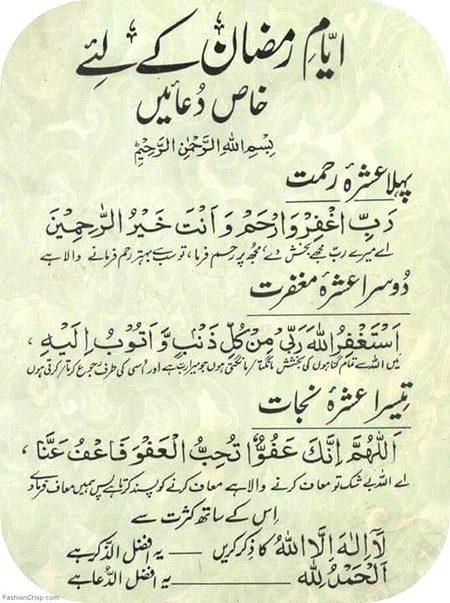 ایّامِ رمضان کے لئے
خاص دُعائیں
بِسْمِ اللهِ الرَّحْمٰنِ الرَّحِیْمِ
پہلا عشرۂ رحمت
رَبِّ اغْفِرْ وَارْحَمْ وَاَنْتَ خَیْرُ الرّٰحِمِیْنَ
اے میرے رب مجھے بخش دے، مجھ پر رحم فرما، تو سب سے بہتر رحم فرمانے والا ہے
دُوسرا عشرۂ مغفرت
اَسْتَغْفِرُ اللهَ رَبِّیْ مِنْ کُلِّ ذَنْبٍ وَّاَتُوْبُ اِلَیْهِ ،
میں اللہ سے تمام گناہوں کی بخشش مانگتا/مانگتی ہوں جو میرا رب ہے اور اُسی کی طرف رجوع کرتا/کرتی ہوں
تیسرا عشرۂ نجات
اَللّٰهُمَّ اِنَّكَ عَفُوٌّ تُحِبُّ الْعَفْوَ فَاعْفُ عَنَّا ،
اے اللہ بے شک تو معاف کرنے والا ہے معاف کرنے کو پسند کرتا ہے پس ہمیں معاف فرما دے
اِس کے ساتھ کثرت سے
لَآ اِلٰهَ اِلَّا اللهُ کا ذکر کریں — یہ افضل الذّکر ہے
اَلْحَمْدُ لِلّٰهِ — یہ افضل الدُّعا ہے
FashionCrisp.com